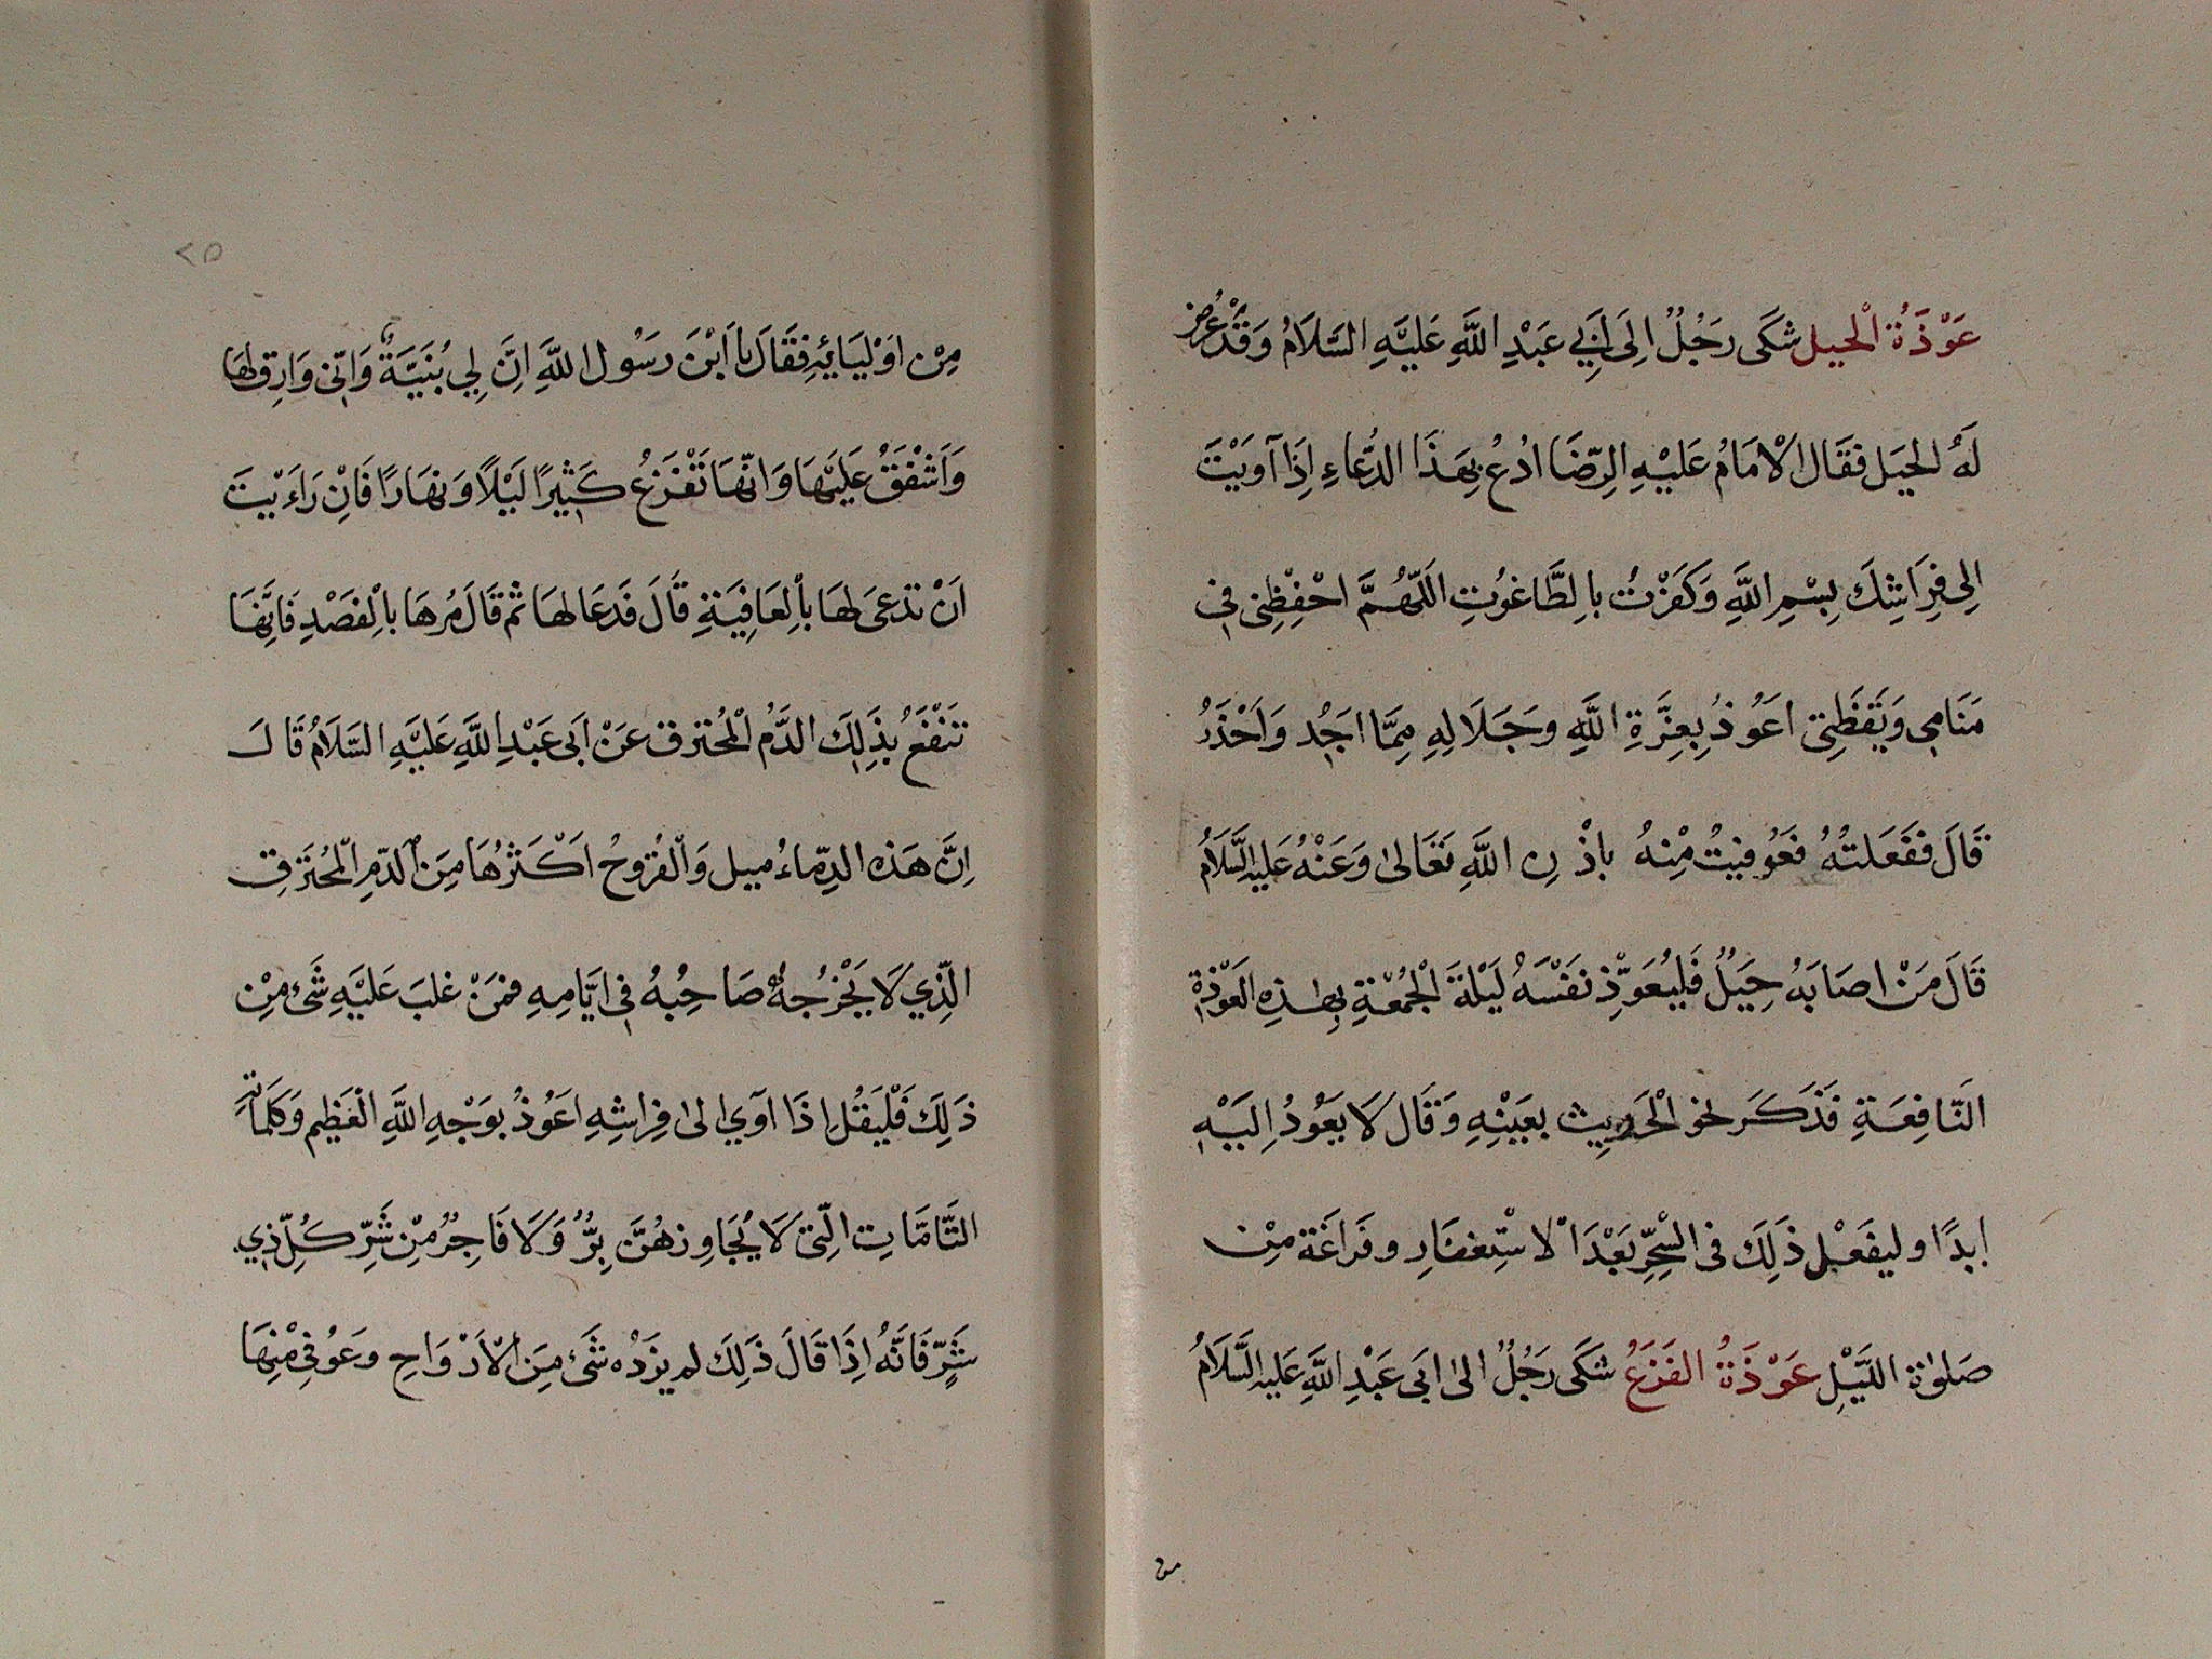 عَوْذَةُ الْحيل شَكَى رَجُلٌ اِلَى اَبِي عَبْدِ اللَّهِ عَلَيْهِ السَّلَامُ وَقَدْ عُرِضَ
لَهُ الحيَل فَقَال الْاِمَامُ عَلَيْهِ الرِّضَا ادُعُ بِهَذَا الدُّعَاءِ اِذَا آوَيْتَ
اِلى فِرَاشِكَ بِسْمِ اللَّهِ وَكَفَرْتُ بالِطَّاغُوتِ اَللّهُمَّ احْفِظْنِى فِى
مَنَامِى وَيَقَظَتِى اعَوُذُ بِعِزَّةِ اللَّهِ وجَلَالِهِ مِمَّا اجَدُ وَاَحْذَرُ
قَالَ فَفَعَلتُهُ فَعُوفيتُ مِنْهُ باذْنِ اللَّهِ تَعَالىٰ وَعَنْهُ عَلَيهِ السَّلَامُ
قَالَ مَنْ اصَابَهُ حِيَلٌ فَليُعَوِّذ نَفْسَهُ لَيْلةَ الْجُمُعَةِ بِهٰذِهِ الْعَوْذَةِ
النَّافِعَةِ فَذَكَرَ نحو الْحَدِيِث بعَيْنِهِ وَقَال لَا يَعَوُدُ اِلَيْهِ
ابِدًا وليفَعْل ذَلِكَ فى السِّحِّرِ بَعْدَ الْاسْتِغْفَارِ وفَراغَة مِنْ
صَلوٰة اللَّيْلِ عَوْذَةُ الفَزَعُ شَكَى رَجُلٌ الىٰ ابَى عَبْدِ اللَّهِ عَلَيهِ السَّلَامُ
من
٢٥
مِنْ اوَلِيَائِهِ فَقَالَ يا اَبْنَ رسَوُل اللَّهِ اِنَّ لِي بُنَيَّةٌ وَانّى وَارِق لهَا
وَاَشْفَقُ عَلَيْهَا وَانّهَا تَفْزَعُ كَثِيرًا لَيْلًا وَنهَارًا فَاِنْ رَاَءيْتَ
اَنْ تدعىَ لهَا باْلعَافِيَةِ قَالَ فَدَعَا لهَا ثم قَالَ مُرهَا باْلفَصْدِ فَاِنَّهَا
تَنْفَعُ بذَلِكَ الدَّمُ الْمُحتَرق عَنْ اَبى عَبْدِ اللَّهِ عَليَهِ السَّلَامُ قَالَ
اِنَّ هَذه الدِّمَاءُ ميل وَالْقُروحُ اَكْثَرُهَا مِنَ الدّمِ الْمُحتَرقِ
الّذِي لَا يَخْرُجهُ صَاحِبُهُ فى ايَّامِهِ فمَنْ غلبَ عَليَهِ شَئ مِنْ
ذَلِكَ فَلْيَقُل اِذَا اَوي الىٰ فِراشِهِ اعَوُذُ بوَجْهِ اللَّهِ الْعَظِيم وَكلمَاتِهِ
التَّامَّاتِ الّتى لَا يُجَاوِزهُنَّ بِرٌّ وَلَا فَاجِرٌ مِّنْ شَرِّ كُلِّ ذِي
شَرٍّ فَانَّهُ اِذَا قَالَ ذَلِكَ لم يزدْه شَئ مِنَ الْاَرْوَاحِ وعَوُفى مْنهَا